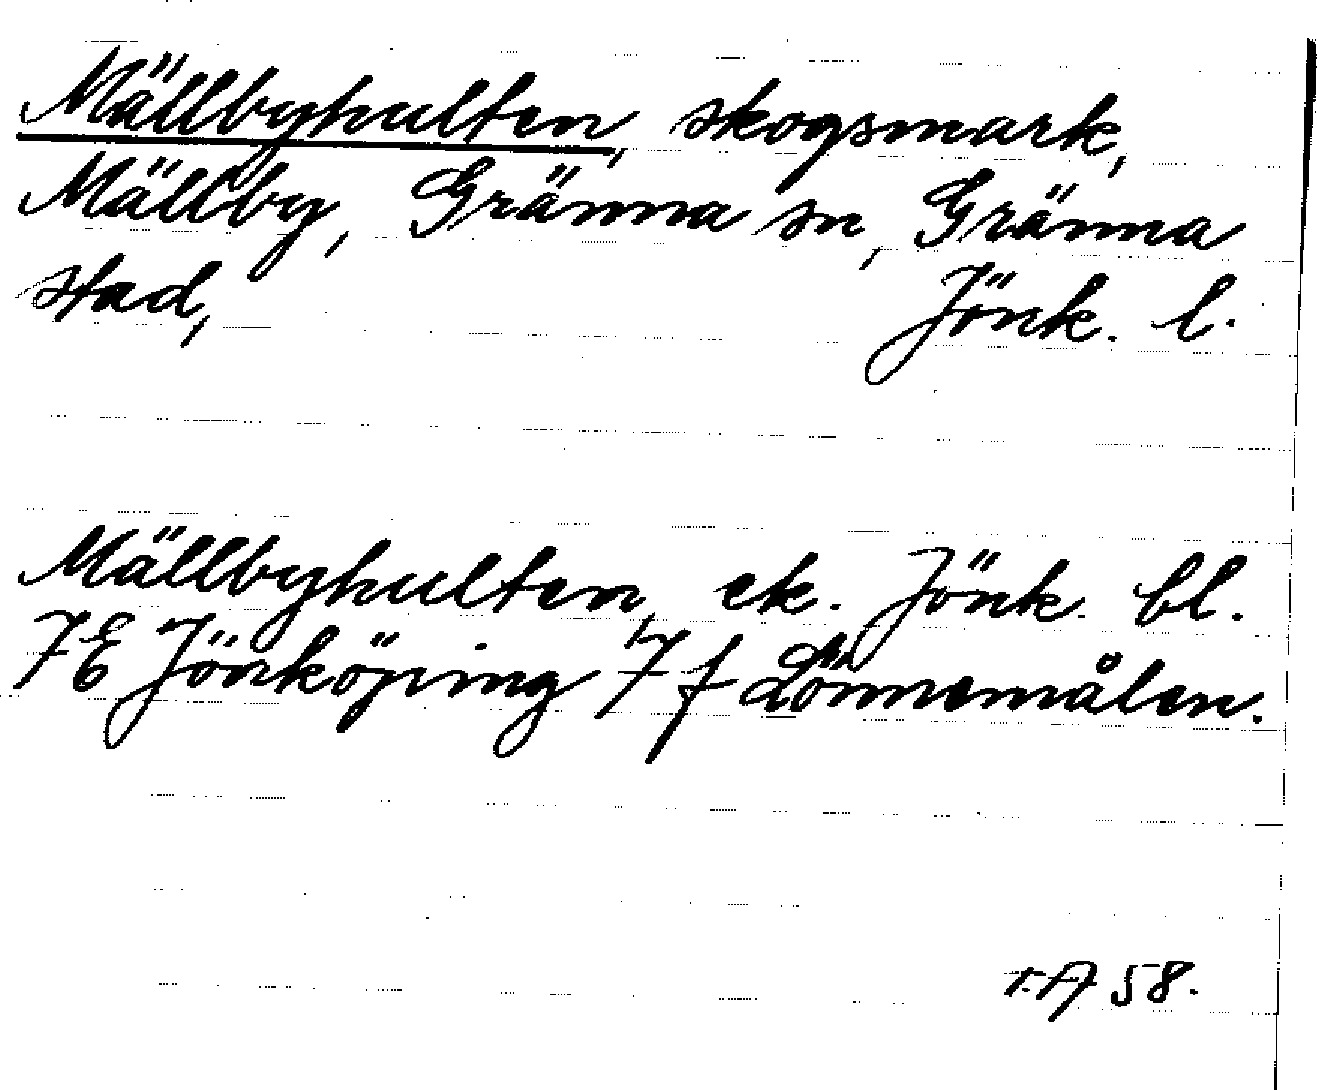 Mällbyhulten, skogsmark,
Mällby, Gränna sn, Gränna
stad, Jönk. l.
Mällbyhulten, ek. Jönk. bl.
7E Jönköping 7 f Lönnemålen.
58.